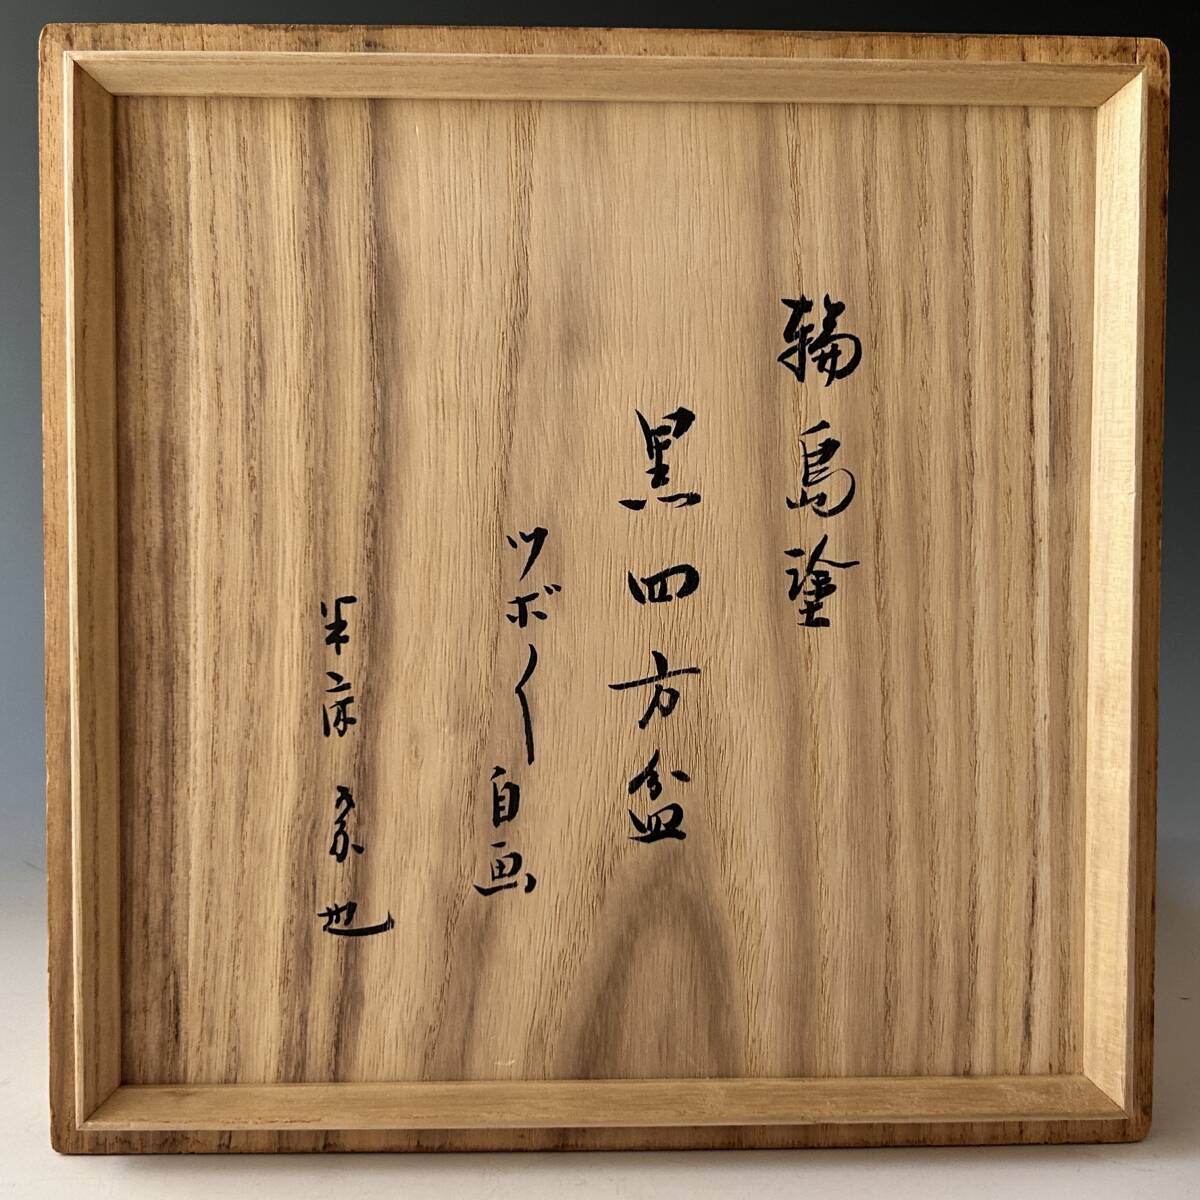 輪島塗
黒四方盆
ツボ〱自画
半床家也